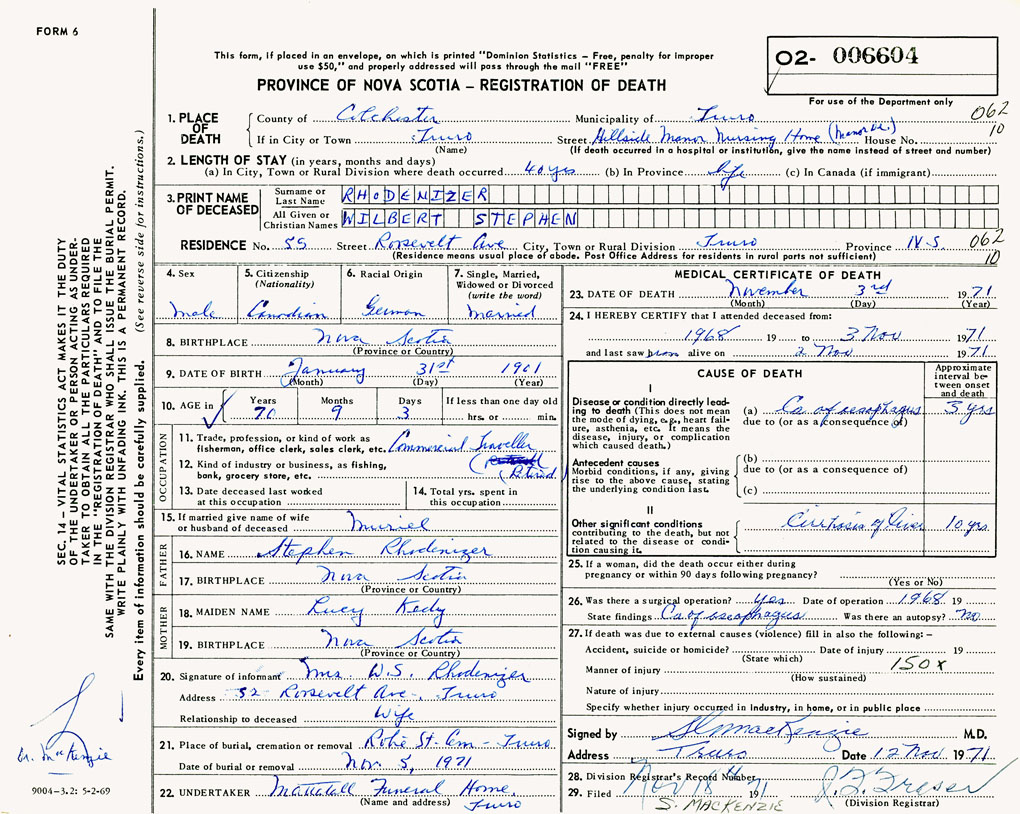 FORM 6
This form, if placed in an envelope, on which is printed "Dominion Statistics – Free, penalty for improper
use $50," and properly addressed will pass through the mail "FREE"
PROVINCE OF NOVA SCOTIA – REGISTRATION OF DEATH
02- 006604
For use of the Department only
1. PLACE OF DEATH
County of Colchester Municipality of Truro 062
If in City or Town Truro Street Hillside Manor Nursing Home (Manor De.) House No. 10
(Name) (If death occurred in a hospital or institution, give the name instead of street and number)
2. LENGTH OF STAY (in years, months and days)
(a) In City, Town or Rural Division where death occurred 40 yrs (b) In Province life (c) In Canada (if immigrant)
3. PRINT NAME OF DECEASED
Surname or Last Name RHODENIZER
All Given or Christian Names WILBERT STEPHEN
RESIDENCE No. 55 Street Roosevelt Ave City, Town or Rural Division Truro Province N.S. 062
(Residence means usual place of abode. Post Office Address for residents in rural parts not sufficient) 10
4. Sex
Male
5. Citizenship
(Nationality)
Canadian
6. Racial Origin
German
7. Single, Married,
Widowed or Divorced
(write the word)
Married
8. BIRTHPLACE Nova Scotia
(Province or Country)
9. DATE OF BIRTH January 31st 1901
(Month) (Day) (Year)
10. AGE in Years Months Days If less than one day old
70 9 3 hrs. or min.
OCCUPATION
11. Trade, profession, or kind of work as
fisherman, office clerk, sales clerk, etc. Commercial Traveller
12. Kind of industry or business, as fishing,
bank, grocery store, etc. (Retired
13. Date deceased last worked
at this occupation
14. Total yrs. spent in
this occupation
15. If married give name of wife
or husband of deceased Muriel
FATHER
16. NAME Stephen Rhodenizer
17. BIRTHPLACE Nova Scotia
(Province or Country)
MOTHER
18. MAIDEN NAME Lucy Kedy
19. BIRTHPLACE Nova Scotia
(Province or Country)
20. Signature of informant Mrs. W.S. Rhodenizer
Address 52 Roosevelt Ave., Truro
Relationship to deceased Wife
21. Place of burial, cremation or removal Robie St. Cem - Truro
Date of burial or removal Nov. 5, 1971
22. UNDERTAKER Mattatall Funeral Home
(Name and address) Truro
MEDICAL CERTIFICATE OF DEATH
23. DATE OF DEATH November 3rd 1971
(Month) (Day) (Year)
24. I HEREBY CERTIFY that I attended deceased from:
1968 19 to 3 Nov 1971
and last saw him alive on 2 Nov 1971
CAUSE OF DEATH
Approximate
interval be-
tween onset
and death
I
Disease or condition directly lead-
ing to death (This does not mean
the mode of dying, e.g., heart fail-
ure, asthenia, etc. It means the
disease, injury, or complication
which caused death.)
(a) Ca of oesophagus 3 yrs
due to (or as a consequence of)
Antecedent causes
Morbid conditions, if any, giving
rise to the above cause, stating
the underlying condition last.
(b)
due to (or as a consequence of)
(c)
II
Other significant conditions
contributing to the death, but not
related to the disease or condi-
tion causing it.
Cirrhosis of liver 10 yrs.
25. If a woman, did the death occur either during
pregnancy or within 90 days following pregnancy?
(Yes or No)
26. Was there a surgical operation? yes Date of operation 1968 19
State findings Ca of oesophagus Was there an autopsy? No
27. If death was due to external causes (violence) fill in also the following: –
Accident, suicide or homicide? Date of injury 19
(State which)
150x
Manner of injury
(How sustained)
Nature of injury
Specify whether injury occurred in industry, in home, or in public place
Signed by MacKenzie M.D.
Address Truro Date 12 Nov 1971
28. Division Registrar's Record Number
29. Filed Nov 18 1971
S. MACKENZIE
(Division Registrar)
SEC. 14 – VITAL STATISTICS ACT MAKES IT THE DUTY
OF THE UNDERTAKER OR PERSON ACTING AS UNDER-
TAKER TO OBTAIN ALL THE PARTICULARS REQUIRED
IN THE "REGISTRATION OF DEATH" AND TO FILE THE
SAME WITH THE DIVISION REGISTRAR WHO SHALL ISSUE THE BURIAL PERMIT.
WRITE PLAINLY WITH UNFADING INK. THIS IS A PERMANENT RECORD.
Every item of information should be carefully supplied. (See reverse side for instructions.)
Dr. MacKenzie
9004-3.2: 5-2-69